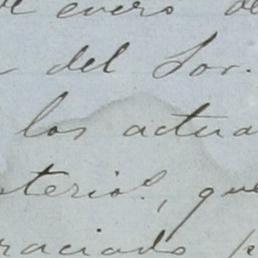 de enero de
del Sor.
los actua
sterios, que
raciado p